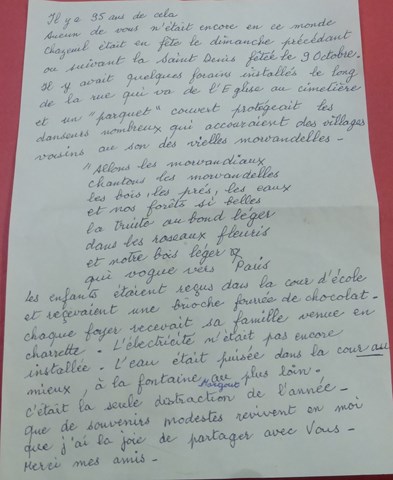 Il y a 95 ans de cela
Aucun de vous n'était encore en ce monde
Chazeuil était en fête le dimanche précédant
ou suivant la Saint Denis fêtée le 9 Octobre.
Il y avait quelques forains installés le long
de la rue qui va de l'Eglise au cimetière
et un "parquet" couvert protégeait les
danseurs nombreux qui accouraient des villages
voisins au son des vielles morvandelles -
"Allons les morvandiaux
chantons les morvandelles
les bois, les prés, les eaux
et nos forêts si belles
la truite au bond léger
dans les roseaux fleuris
et notre bois léger
qui vogue vers Paris
les enfants étaient reçus dans la cour d'école
et recevaient une brioche fourrée de chocolat -
chaque foyer recevait sa famille venue en
charrette - L'électricité n'était pas encore
installée - L'eau était puisée dans la cour au
mieux, à la fontaine au plus loin -
c'était la seule distraction de l'année -
que de souvenirs modestes revivent en moi
que j'ai la joie de partager avec Vous -
Merci mes amis -